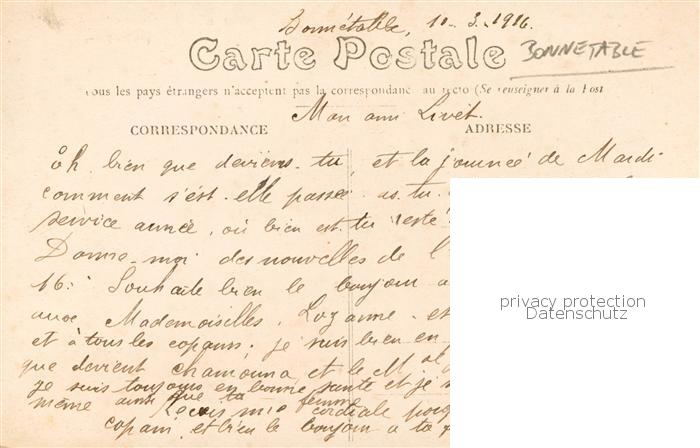 Bonnétable, 10-3-1916.
Carte Postale
BONNETABLE
Tous les pays étrangers n'acceptent pas la correspondance au recto (Se renseigner à la Post
Mon ami Livet.
CORRESPONDANCE
ADRESSE
Oh bien que deviens-tu, et la journée de Mardi
comment s'est-elle passée as-tu
service année, où bien est-tu resté
Donne-moi des nouvelles de l'
16: Souhaite bien le bonjour a
aux Mademoiselles, Lozanne et
et à tous les copains; je suis bien en
que devient chamouna et le M
je suis toujours en bonne santé et je
même ainsi que ta femme
Reçois mie cordiale poig
copain et bien le bonjour a ta f
privacy protection
Datenschutz